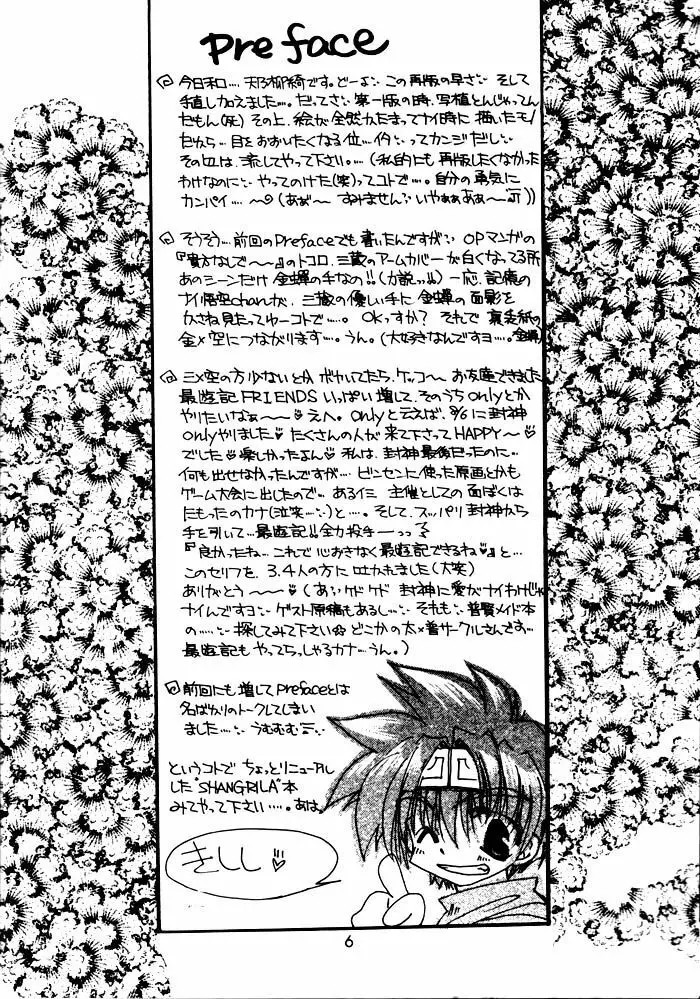 Preface
今日和…. 天乃柳綺です。どーよ この再版の早さ そして
手直し加えました…。だってさ 第一版の時、写植とんじゃってん
だもん(死) その上、絵が全然かたまってナイ時に描いたモノ
だから… 目をおおいたくなる位… ってカンジだし
その辺は、流してやって下さい。…. (私的にも再版したくなかった
わけなのに やってのけた(笑)ってコトで…。自分の勇気に
カンパイ…. 〜 (あぁ〜 すみません いやぁぁあぁ〜 ))
そうそう…前回のPrefaceでも書いたんですが OPマンガの
『貴方なしで〜〜』のトコロ、三蔵のアームカバーが白くなってる所
あのシーンだけ 金蝉の手なの!!(力説っ!!) 一応、記憶の
ナイ悟空chanが、三蔵の優しい手に 金蝉の面影を
かさね見たってゆーコトで….。OKっすか? それで 裏表紙の
金×空につながります…。うん。(大好きなんですヨ….。金蝉
三×空の方少ないとか ボヤいてたら、ケッコ〜 お友達できました
最遊記FRIENDS いっぱい増して、そのうちonlyとか
やりたいなぁ〜〜 えへ。onlyと云えば、8/6に封神
onlyやりました♡ たくさんの人が来て下さってHAPPY〜♡
でした♡楽しかったよん♡ 私は、封神最後だったのに…
何も出せなかったんですが…. ビンセンに使った原画とかも
ゲーム大会に出したので… あるイミ 主催としての面ぼくは
たもったのカナ(泣笑…)と….。そして、スッパリ 封神から
手を引いて… 最遊記!!全力投手ーっっ
『良かったね…これで心おきなく最遊記できるね♡』と…
このセリフを、3.4人の方に 吐かれました(大笑)
ありがとう〜〜♡ (あ ケド ケド 封神に愛がナイわけじゃ
ナイんですヨ ゲスト原稿もあるし… それも 普賢メイド本
の….. 探してみて下さい どこかの太×普サークルさんです…
最遊記も やってらっしゃるカナ…うん。)
前回にも増してPrefaceとは
名ばかりのトークしてしまい
ました….. うむむむ
というコトで ちょっとリニューアル
した "SHANGRILA"本
みてやって下さい….。あは。
きししし♡
6